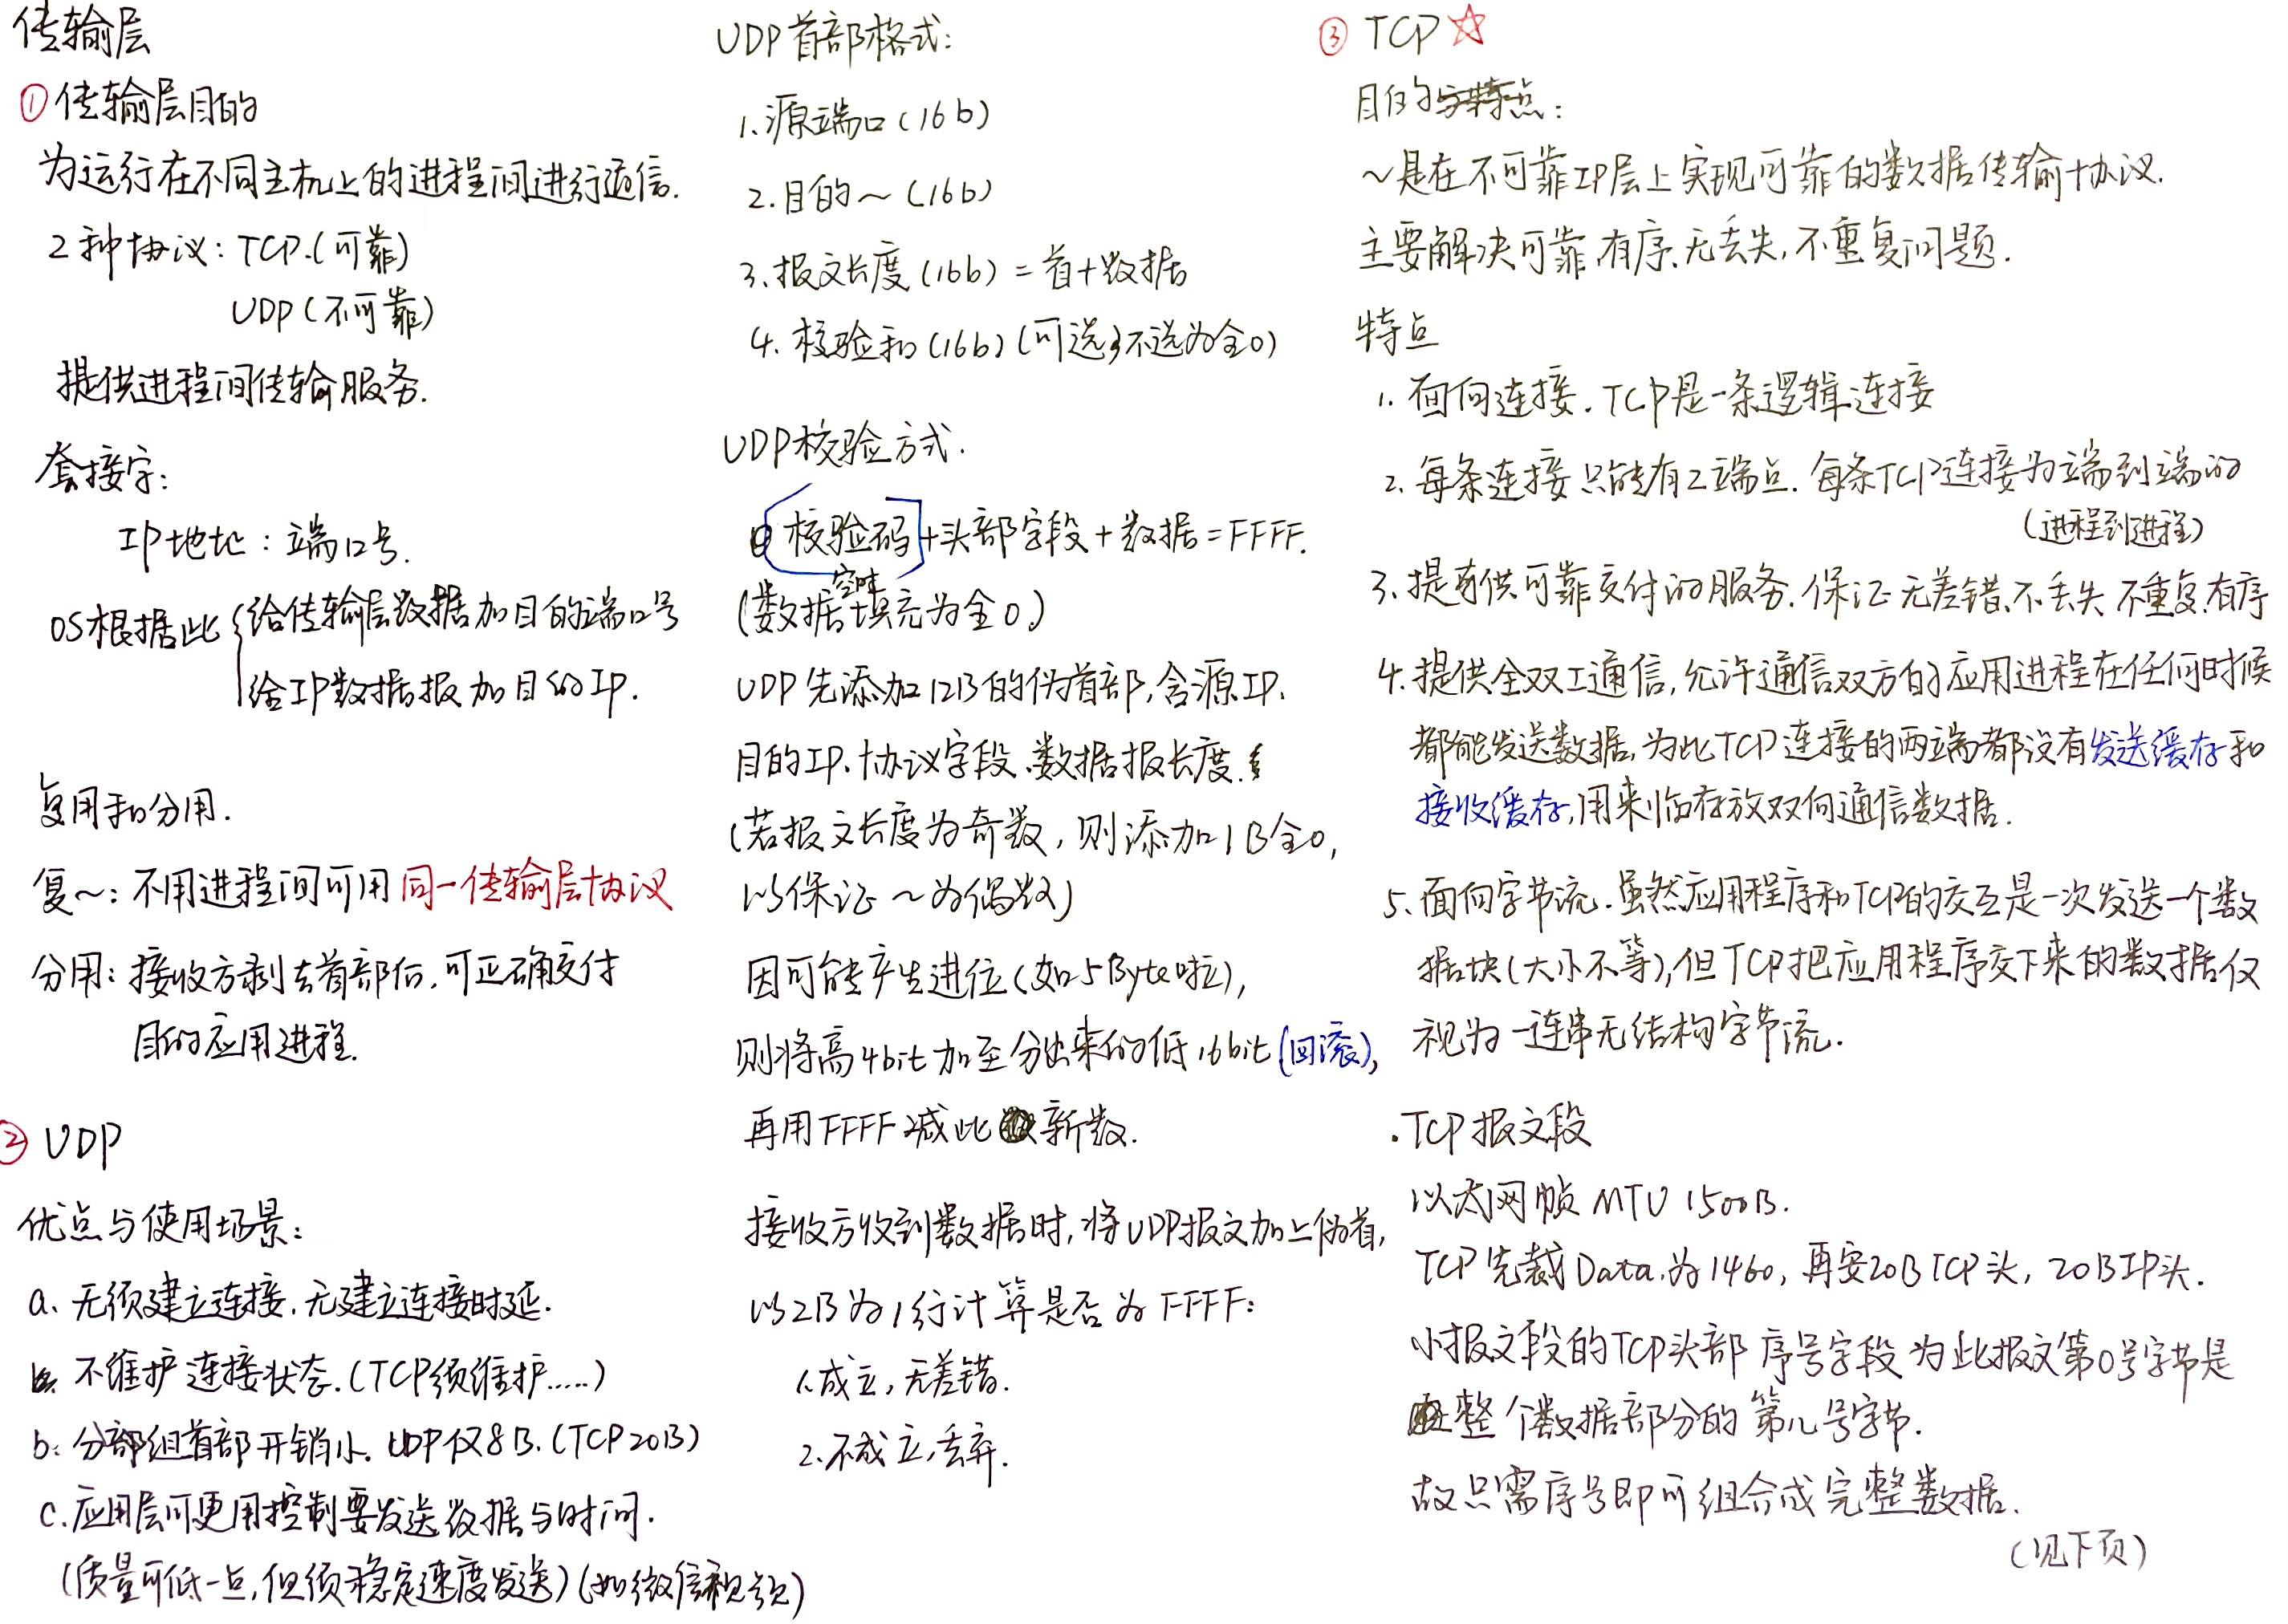 传输层
①传输层目的
为运行在不同主机上的进程间进行通信.
2种协议: TCP.(可靠)
UDP(不可靠)
提供进程间传输服务.
套接字:
IP地址: 端口号.
OS根据此{给传输层数据加目的端口号
给IP数据报加目的IP.
复用和分用.
复~: 不用进程间可用同一传输层协议
分用: 接收方剥去首部后,可正确交付
目的应用进程.
② UDP
优点与使用场景:
a. 无须建立连接.无建立连接时延.
不维护连接状态.(TCP须维护.....)
b. 分组首部开销小. UDP仅8B.(TCP20B)
c.应用层可更用控制要发送数据与时间.
(质量可低一点,但须稳定速度发送)(如微信视频)
UDP首部格式:
1.源端口(16b)
2.目的~(16b)
3.报文长度(16b)=首+数据
4. 校验和(16b)(可选,不选为全0)
UDP校验方式.
校验码+头部字段+数据=FFFF.
(数据空时填充为全0)
UDP先添加12B的伪首部,含源IP.
目的IP.协议字段.数据报长度.
(若报文长度为奇数,则添加1B全0,
以保证~为偶数)
因可能产生进位(如5Byte啦),
则将高4bit加至分出来的低16bit(回滚),
再用FFFF减此新数.
接收方收到数据时,将UDP报文加上伪首,
以2B为1行计算是否为FFFF:
1.成立,无差错.
2.不成立,丢弃.
③ TCP☆
目的:
~是在不可靠IP层上实现可靠的数据传输协议.
主要解决可靠.有序.无丢失,不重复问题.
特点
1. 面向连接.TCP是一条逻辑连接
2. 每条连接只能有2端点.每条TCP连接为端到端的
(进程到进程)
3.提供可靠交付的服务.保证无差错.不丢失.不重复.有序
4.提供全双工通信,允许通信双方的应用进程在任何时候
都能发送数据,为此TCP连接的两端都设有发送缓存和
接收缓存,用来临存放双向通信数据.
5.面向字节流.虽然应用程序和TCP的交互是一次发送一个数
据块(大小不等),但TCP把应用程序交下来的数据仅
视为一连串无结构字节流.
·TCP报文段
以太网帧 MTU 1500B.
TCP先裁Data.为1460,再安20B TCP头,20B IP头.
小报文段的TCP头部 序号字段为此报文第0号字节是
整个数据部分的第几号字节.
故只需序号即可组合成完整数据.
(见下页)